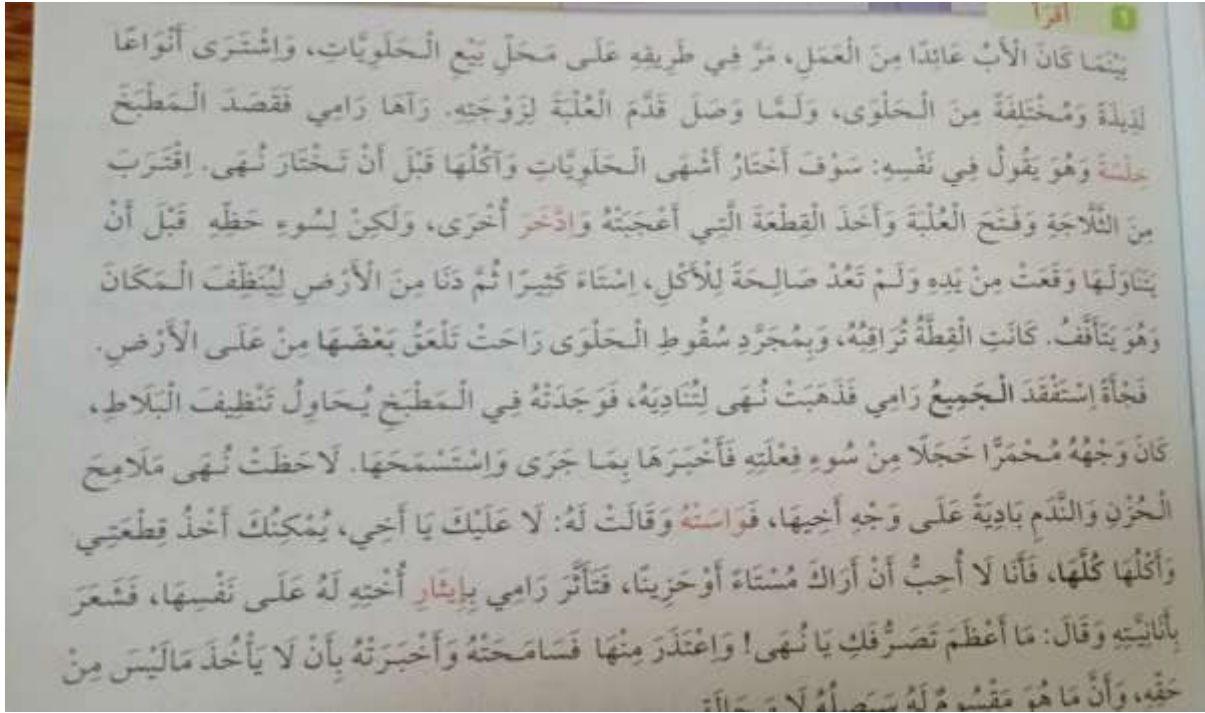 ٦ أَقْرَأُ
بَيْنَمَا كَانَ الْأَبُ عَائِدًا مِنَ الْعَمَلِ، مَرَّ فِي طَرِيقِهِ عَلَى مَحَلِّ بَيْعِ الْحَلَوِيَّاتِ، وَاِشْتَرَى أَنْوَاعًا
لَذِيذَةً وَمُخْتَلِفَةً مِنَ الْحَلْوَى، وَلَمَّا وَصَلَ قَدَّمَ الْعُلْبَةَ لِزَوْجَتِهِ. رَآهَا رَامِي فَقَصَدَ الْمَطْبَخَ
خِلْسَةً وَهُوَ يَقُولُ فِي نَفْسِهِ: سَوْفَ أَخْتَارُ أَشْهَى الْحَلَوِيَّاتِ وَآكُلُهَا قَبْلَ أَنْ تَخْتَارَ نُهَى. اِقْتَرَبَ
مِنَ الثَّلَّاجَةِ وَفَتَحَ الْعُلْبَةَ وَأَخَذَ الْقِطْعَةَ الَّتِي أَعْجَبَتْهُ وَاِدَّخَرَ أُخْرَى، وَلَكِنْ لِسُوءِ حَظِّهِ قَبْلَ أَنْ
يَتَنَاوَلَهَا وَقَعَتْ مِنْ يَدِهِ وَلَمْ تَعُدْ صَالِحَةً لِلْأَكْلِ، اِسْتَاءَ كَثِيرًا ثُمَّ دَنَا مِنَ الْأَرْضِ لِيُنَظِّفَ الْمَكَانَ
وَهُوَ يَتَأَفَّفُ. كَانَتِ الْقِطَّةُ تُرَاقِبُهُ، وَبِمُجَرَّدِ سُقُوطِ الْحَلْوَى رَاحَتْ تَلْعَقُ بَعْضَهَا مِنْ عَلَى الْأَرْضِ.
فَجْأَةً اِسْتَفْقَدَ الْجَمِيعُ رَامِي فَذَهَبَتْ نُهَى لِتُنَادِيَهُ، فَوَجَدَتْهُ فِي الْمَطْبَخِ يُحَاوِلُ تَنْظِيفَ الْبَلَاطِ،
كَانَ وَجْهُهُ مُحْمَرًّا خَجَلًا مِنْ سُوءِ فِعْلَتِهِ فَأَخْبَرَهَا بِمَا جَرَى وَاِسْتَسْمَحَهَا. لَاحَظَتْ نُهَى مَلَامِحَ
الْحُزْنِ وَالنَّدَمِ بَادِيَةً عَلَى وَجْهِ أَخِيهَا، فَوَاسَتْهُ وَقَالَتْ لَهُ: لَا عَلَيْكَ يَا أَخِي، يُمْكِنُكَ أَخْذُ قِطْعَتِي
وَأَكْلُهَا كُلَّهَا، فَأَنَا لَا أُحِبُّ أَنْ أَرَاكَ مُسْتَاءً أَوْ حَزِينًا، فَتَأَثَّرَ رَامِي بِإِيثَارِ أُخْتِهِ لَهُ عَلَى نَفْسِهَا، فَشَعَرَ
بِأَنَانِيَّتِهِ وَقَالَ: مَا أَعْظَمَ تَصَرُّفَكِ يَا نُهَى! وَاِعْتَذَرَ مِنْهَا فَسَامَحَتْهُ وَأَخْبَرَتْهُ بِأَنْ لَا يَأْخُذَ مَالَيْسَ مِنْ
حَقِّهِ، وَأَنَّ مَا هُوَ مَقْسُومٌ لَهُ سَيَصِلُهُ لَا مَحَالَةَ.